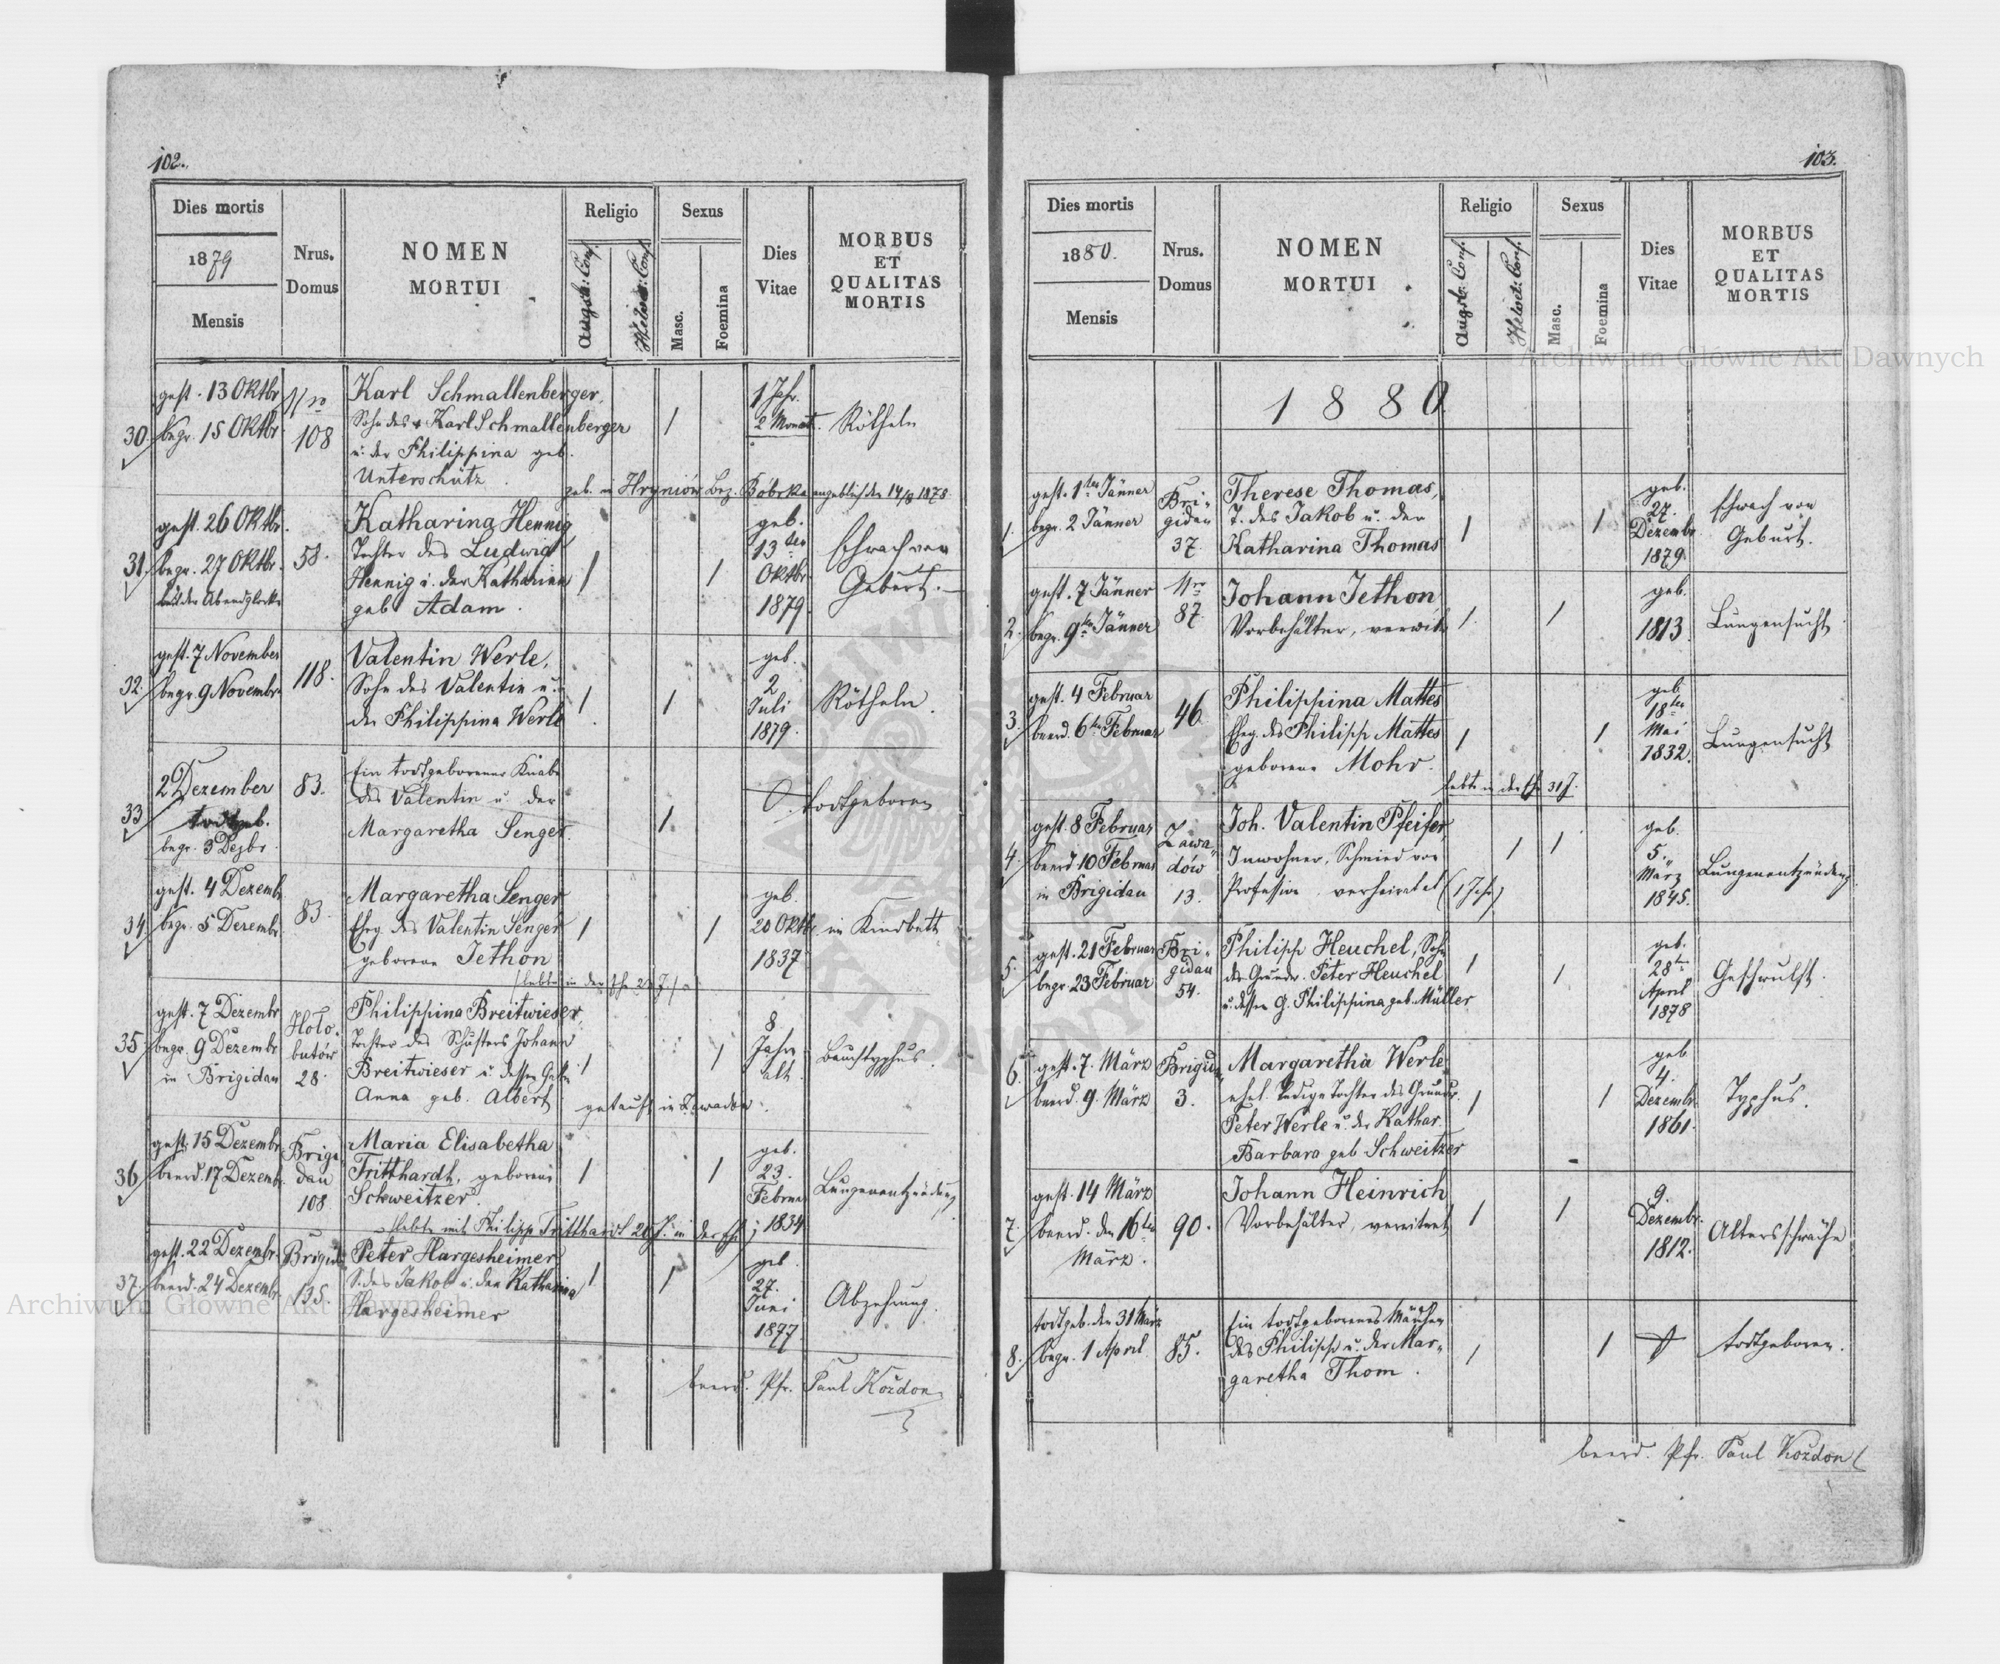 102.
Dies mortis
1879
Mensis
Nrus.
Domus
NOMEN
MORTUI
Religio
Augsb. Conf.
Helvet. Conf.
Sexus
Masc.
Foemina
Dies
Vitae
MORBUS
ET
QUALITAS
MORTIS
30.
gest. 13 Oktbr
begr. 15 Oktbr
Nro
108
Karl Schmallenberger,
Sohn des + Karl Schmallenberger
u. der Philippina geb.
Unterschütz.
geb. in Hryniów Bez. Bobrka angeblich den 14/8 1878
1
1 Jahr.
2 Monat.
Rötheln
31.
gest. 26 Oktbr.
begr. 27 Oktbr.
bei der Abendglocke
58.
Katharina Hennig
Tochter des Ludwig
Hennig u. der Katharina
geb. Adam.
1
1
geb.
13ten
Oktbr.
1879.
Schwach von
Geburt.
32.
gest. 7 November
begr. 9 Novembr.
118.
Valentin Werle,
Sohn des Valentin u.
der Philippina Werle
1
1
geb.
2
Juli
1879.
Rötheln.
33.
2 Dezember
todtgeb.
begr. 3 Dezbr.
83.
Ein todtgeborener Knabe
des Valentin u. der
Margaretha Senger.
1.
0.
todtgeboren
34.
gest. 4 Dezemb.
begr. 5 Dezembr.
83.
Margaretha Senger
Eheg. des Valentin Senger
geborene Jethon
1
1
geb.
20 Oktb.
1837
im Kindbett
35.
gest. 7 Dezembr
begr. 9 Dezembr
in Brigidau
Hoło-
butów
28.
Philippina Breitwieser
Tochter des Schusters Johann
Breitwieser u. dessen
Anna geb. Albert
getauft in Zawadów.
1
1
8
Jahre
alt.
Bauchtyphus.
36.
gest. 15 Dezembr.
beerd. 17 Dezemb.
Brigi-
dau
108.
Maria Elisabetha
Tritthardt, geborene
Schweitzer.
lebte mit Philipp Tritthardt 26 J. in der Ehe
1
1
geb.
23.
Februar
1834
Lungenentzündung
37.
gest. 22 Dezembr.
beerd. 24 Dezembr.
Brigid.
135.
Peter Hargesheimer
S. des Jakob u. der Katharina
Hargesheimer
1
1
geb.
27.
Juni
1877.
Abzehrung.
beerd. Pfr. Paul Kożdon
103.
Dies mortis
1880.
Mensis
Nrus.
Domus
NOMEN
MORTUI
Religio
Augsb. Conf.
Helvet. Conf.
Sexus
Masc.
Foemina
Dies
Vitae
MORBUS
ET
QUALITAS
MORTIS
1880
1.
gest. 1ten Jänner
begr. 2 Jänner
Bri-
gidau
37.
Therese Thomas,
T. des Jakob u. der
Katharina Thomas
1
1
geb.
27.
Dezembr
1879.
schwach von
Geburt.
2.
gest. 7 Jänner
begr. 9ten Jänner
Nro
87.
Johann Jethon
Vorbehälter, verwit.
1.
1
geb.
1813.
Lungensucht
3.
gest. 4 Februar
beerd. 6ten Februar
46.
Philippina Mattes
Eheg. des Philipp Mattes
geborene Mohr.
lebte in der Ehe 31 J.
1
1
geb.
18ten
Mai
1832.
Lungensucht
4.
gest. 8 Februar
beerd. 10 Februar
in Brigidau
Zawa-
dów
13.
Joh. Valentin Pfeifer,
Inwohner, Schmied von
Profession verheiratet
1
1
geb.
5.
März
1845.
Lungenentzündung.
5.
gest. 21 Februar
begr. 23 Februar
Bri-
gidau
54.
Philipp Heuchel, Sohn
des Grundw. Peter Heuchel
u. dessen G. Philippina geb. Müller
1
1
geb.
28ten
April
1878
Geschwulst.
6.
gest. 7. März
beerd. 9. März
Brigidau
3.
Margaretha Werle,
ehel. ledige Tochter des Grundw.
Peter Werle u. der Kathar.
Barbara geb. Schweitzer
1
1
geb.
4.
Dezembr.
1861.
Typhus.
7.
gest. 14 März
beerd. den 16ten
März.
90.
Johann Heinrich
Vorbehälter, verwitwet
1
1
9.
Dezembr.
1812.
Altersschwäche
8.
todtgeb. den 31 März
begr. 1 April
85.
Ein todtgeborenes Mädchen
des Philipp u. der Mar-
garetha Thom.
1
1
todtgeboren.
beerd. Pfr. Paul Kożdon
Archiwum Główne Akt Dawnych
Archiwum Główne Akt Dawnych